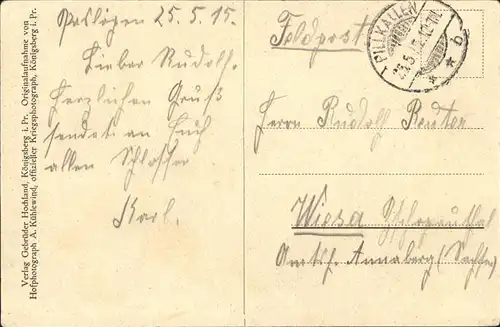 25.5.15.
Lieber Rudolf.
Herzlichen Gruß
sendet an Euch
allen
Karl.
Feldpost
PILLKALLEN
* * b
Herrn Rudolf
Wiesa
Amtsh. Annaberg (Sachsen)
Verlag Gebrüder Hochland, Königsberg i. Pr. Originalaufnahme von
Hofphotograph A. Kühlewind, offizieller Kriegsphotograph, Königsberg i. Pr.